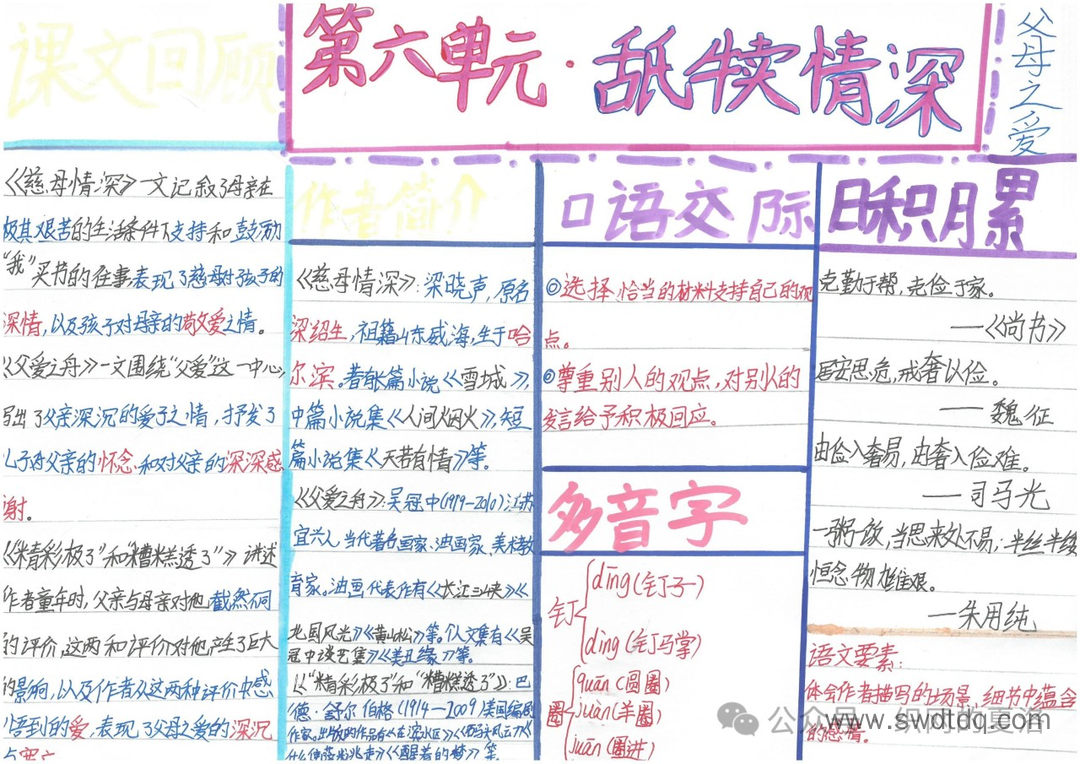 课文回顾
第六单元·舐犊情深
父母之爱
《慈母情深》一文记叙了母亲在
极其艰苦的生活条件下支持和鼓励
“我”买书的往事,表现了慈母对孩子的
深情,以及孩子对母亲的敬爱之情。
《父爱之舟》一文围绕“父爱”这一中心
写出了父亲深沉的爱子之情,抒发了
儿子对父亲的怀念和对父亲的深深感
谢。
《“精彩极了”和“糟糕透了”》讲述
作者童年时,父亲与母亲对他截然不同
的评价,这两种评价对他产生了巨大
的影响,以及作者从这两种评价中感
悟到的爱,表现了父母之爱的深沉
与宽广
作者简介
《慈母情深》:梁晓声,原名
梁绍生,祖籍山东威海,生于哈
尔滨。著有长篇小说《雪城》,
中篇小说集《人间烟火》,短
篇小说集《天若有情》等。
《父爱之舟》:吴冠中(1919-2010)江苏
宜兴人,当代著名画家、油画家、美术教
育家。油画代表作有《长江三峡》《
北国风光》《黄山松》等。个人文集有《吴
冠中谈艺集》《美丑缘》等。
《“精彩极了”和“糟糕透了”》:巴
德·舒尔伯格(1914—2009)美国编剧
作家。出版的作品有《在滨水区》《
什么使萨米跑》《醒着的梦》等。
口语交际
◎选择恰当的材料支持自己的观
点。
◎尊重别人的观点,对别人的
发言给予积极回应。
多音字
钉
dīng(钉子)
dìng(钉马掌)
圈
quān(圆圈)
juàn(羊圈)
juān(圈进)
日积月累
克勤于帮,克俭于家。
—《尚书》
居安思危,戒奢以俭。
—魏征
由俭入奢易,由奢入俭难。
—司马光
一粥一饭,当思来处不易;半丝半缕
恒念物力维艰。
—朱用纯
语文要素:
体会作者描写的场景、细节中蕴含
的感情。
公众号
www.swdtdq.com